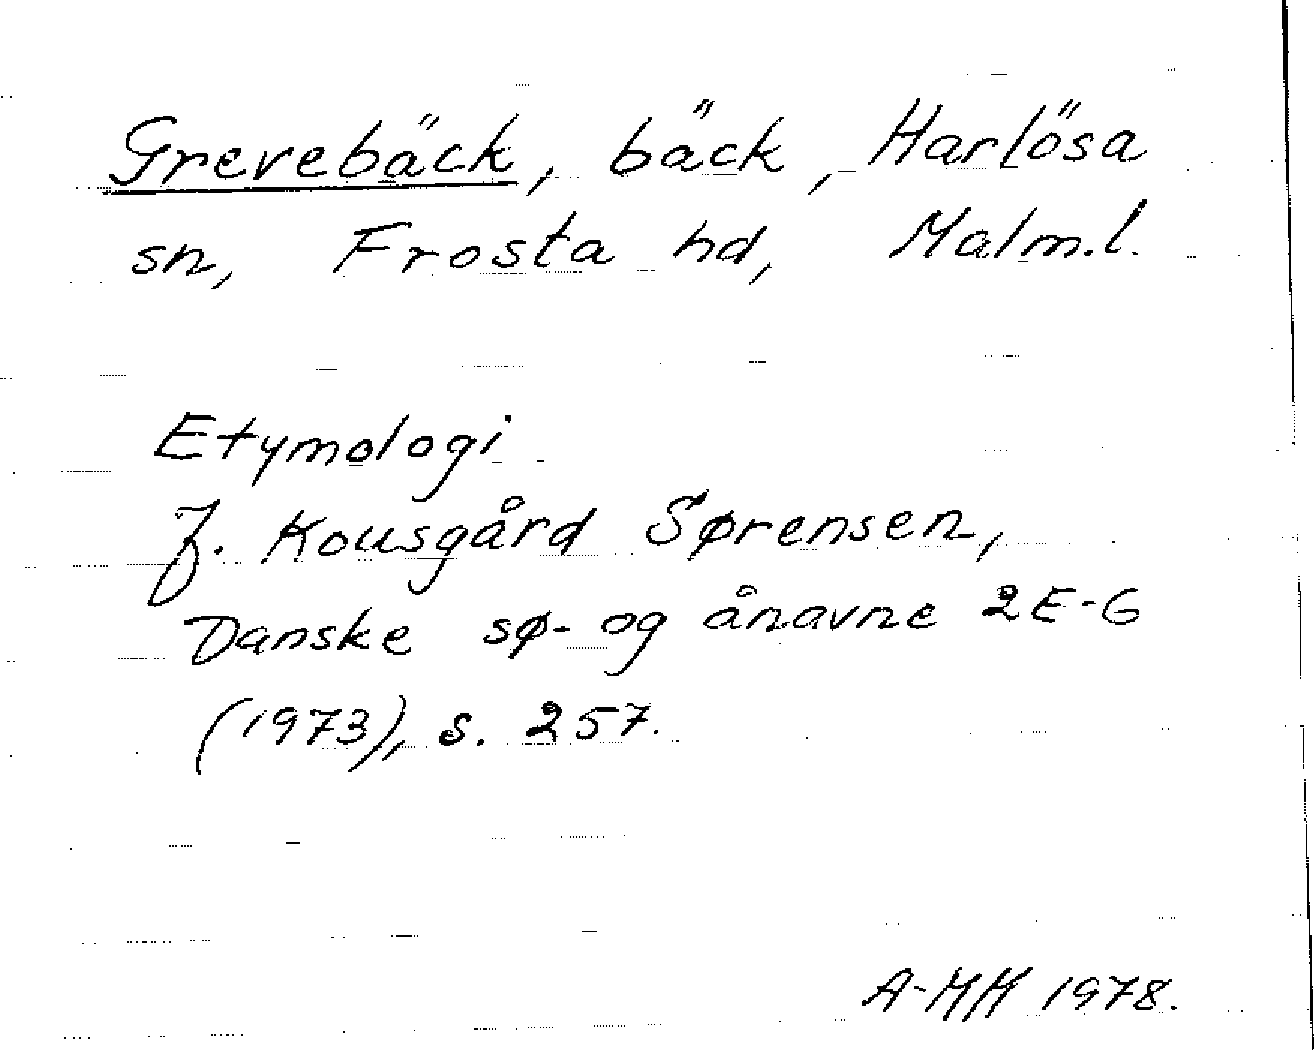 Grevebäck, bäck, Harlösa
sn, Frosta hd, Malm.l.
Etymologi
J. Kousgård Sørensen,
Danske sø- og ånavne 2E-G
(1973), s. 257.
A-MH 1978.